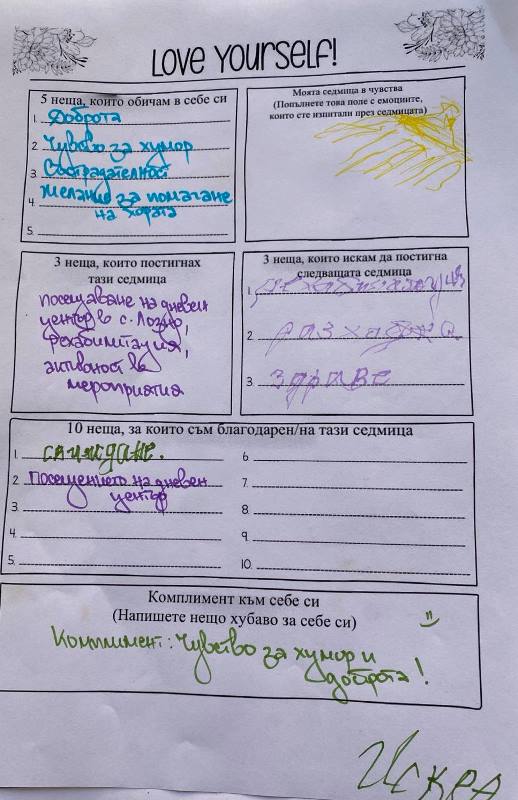 LOVE YOURSELF!
5 неща, които обичам в себе си
1. Доброта
2. Чувство за хумор
3. Състрадателност
4. Желание за помагане
на хората
5.
Моята седмица в чувства
(Попълнете това поле с емоциите,
които сте изпитали през седмицата)
3 неща, които постигнах
тази седмица
посещаване на дневен
център в с. Лозно,
рехабилитация,
активност в
мероприятия
3 неща, които искам да постигна
следващата седмица
1.
2. разходка
3. здраве
10 неща, за които съм благодарен/на тази седмица
1.
2. Посещението на дневен
център
3.
4.
5.
6.
7.
8.
9.
10.
Комплимент към себе си
(Напишете нещо хубаво за себе си)
Комплимент: Чувство за хумор и
доброта!
Искра